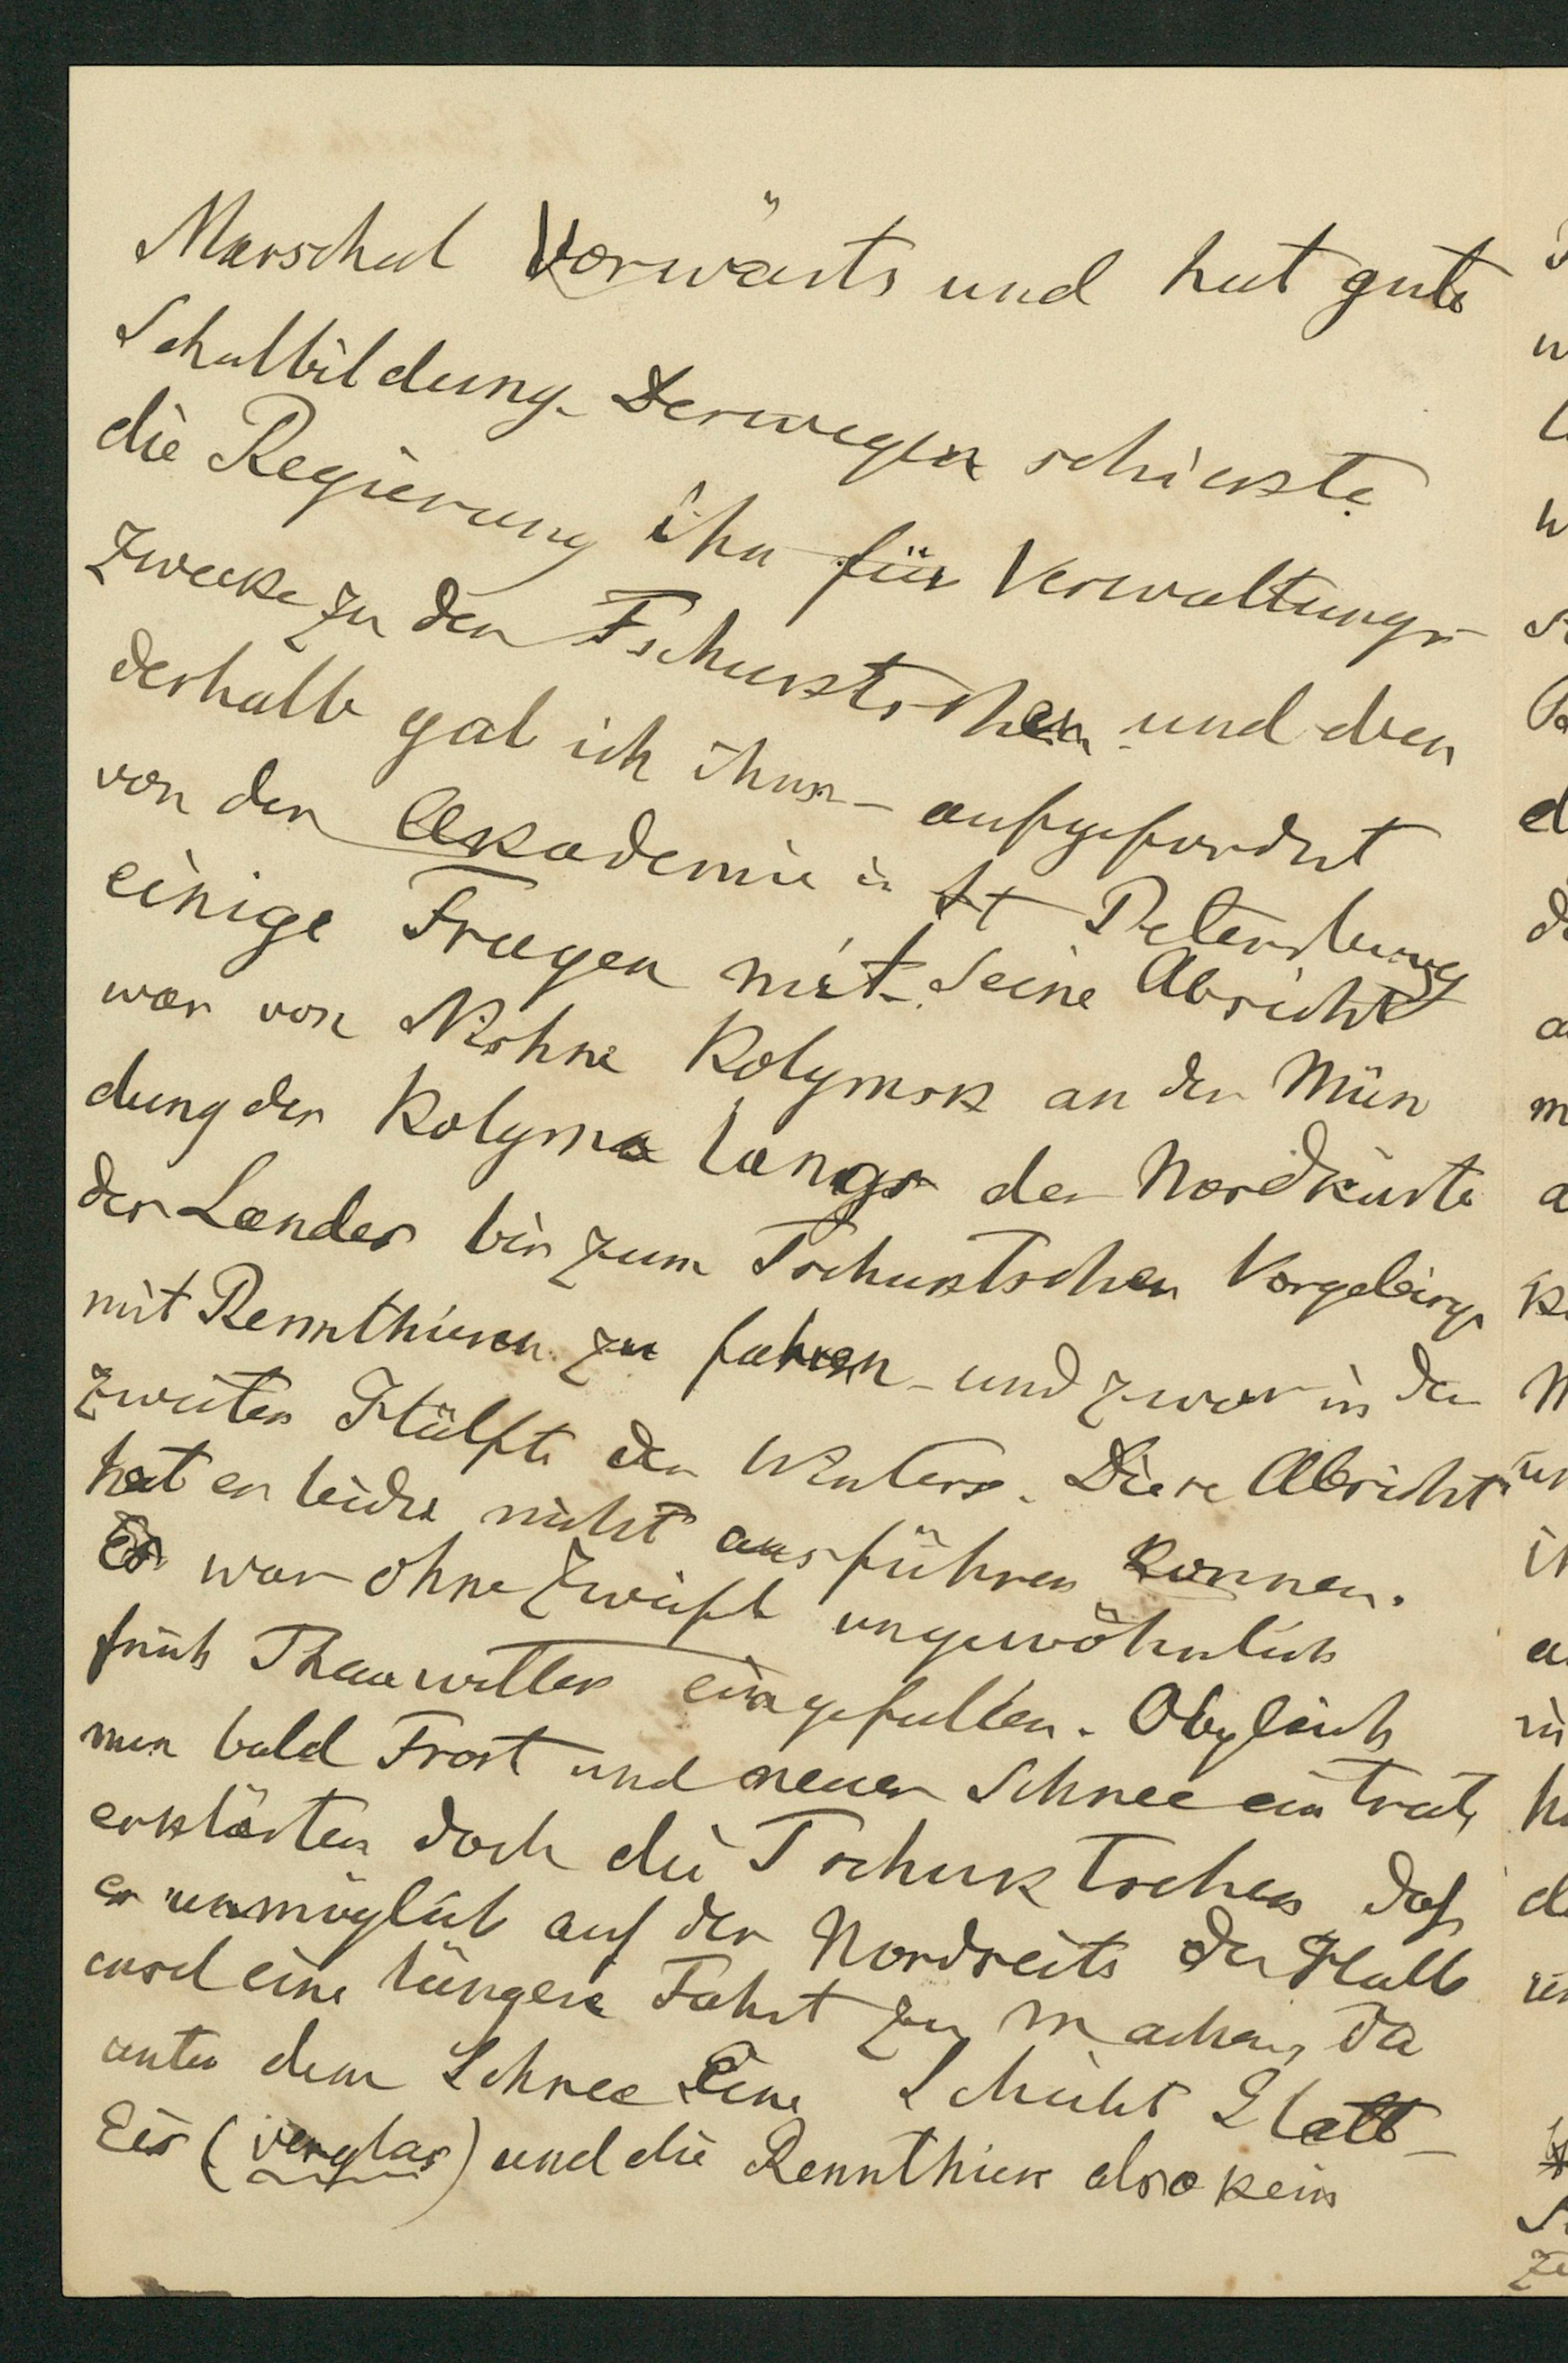 Marschal Vorwärts" und hat gute
Schulbildung. Deswegen schickte
die Regierung ihn für Verwaltungs-
zwecke zu den Tschuktschen und den
deshalb gab ich ihm – aufgefordert
von der Akademie in St Petersburg
einige Fragen mit. Seine Absicht
war von Nishne Kolymsk an der Mün
dung der Kolyma längs der Nordküste
des Landes bis zum Tschuktschen Vorgebirge
mit Rennthieren zu fahren – und zwar in der
zweiten Hälfte des Winters. Diese Absicht
hat er leider nicht ausführen können.
Es war ohne Zweifel ungewöhnlich
früh Thauwetter eingefallen. Obgleich
nun bald Frost und neuer Schnee eintrat,
erklärten doch die Tschuktschen daß
es unmöglich auf der Nordseite der Halb
insel eine längere Fahrt zu machen, da
unter dem Schnee eine Schicht Glatt-
Eis (verglas) und die Rennthiere also kein